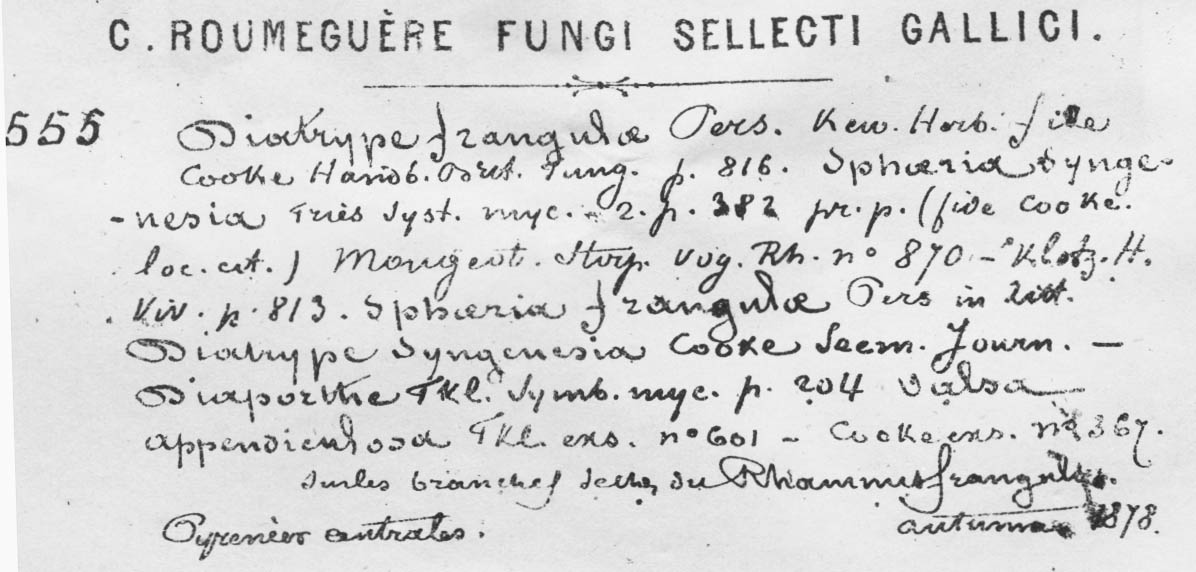 C. ROUMEGUÈRE FUNGI SELLECTI GALLICI.
555 Diatrype frangulæ Pers. Kew. Herb. fide
Cooke Handb. Brit. Fung. p. 816. Sphæria Synge-
-nesia Fries Syst. myc. - 2. p. 382 pr. p. (fide Cooke.
loc. cit.) Mougeot. Stirp. Vog. Rh. n° 870 - Klotz. H.
Viv. p. 813. Sphæria frangulæ Pers in litt.
Diatrype Syngenesia Cooke Seem. Journ. -
Diaporthe Fkl. Symb. myc. p. 204 Valsa
appendiculosa Fkl. exs. n° 601 - Cooke exs. n° 367.
Sur les branches seches du Rhamnus frangula.
Pyrenées centrales. 1878.